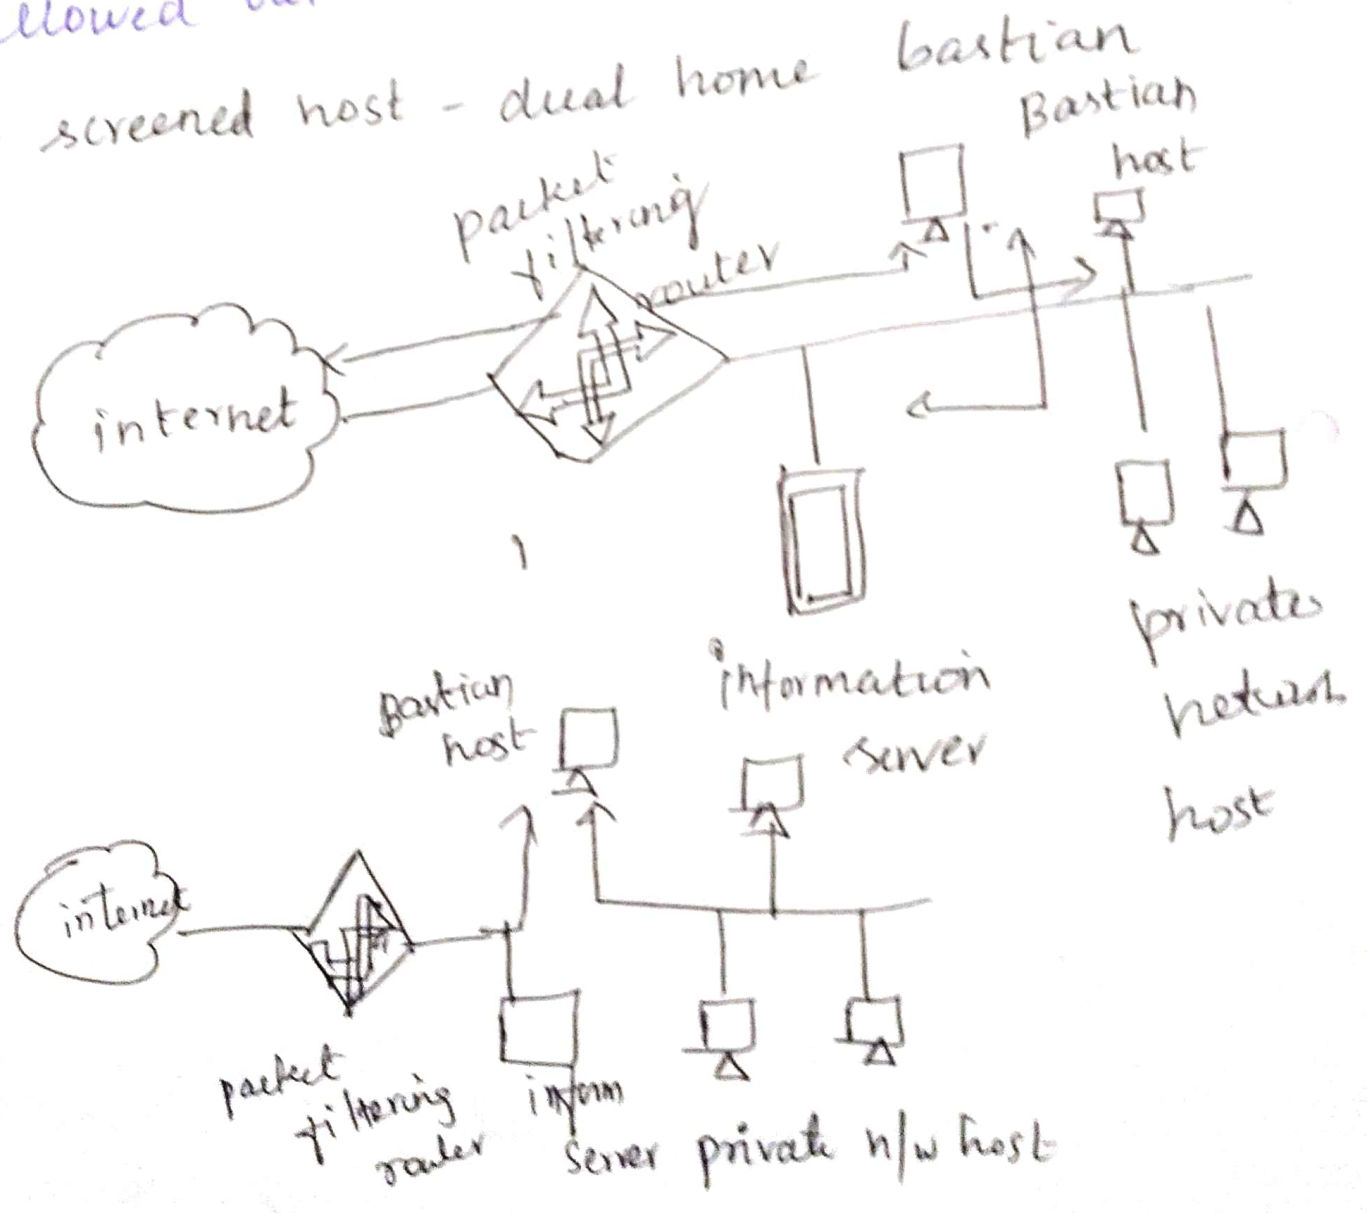 screened host - dual home bastian
Bastian
host
packet
filtering
router
internet
information
server
private
host
Bastian
host
internet
packect
filtering
router
inform
server private n/w host